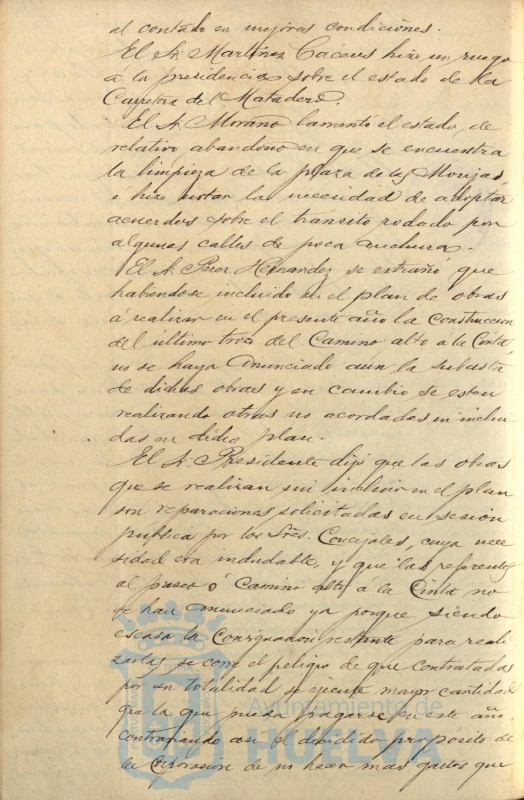 al contado en mejores condiciones.
El Sr. Martinez Cáceres hizo un ruego
á la presidencia sobre el estado de la
Carretera del Matadero.
El Sr. Morano lamentó el estado, de
relativo abandono en que se encuentra
la limpieza de la plaza de las Monjas,
é hizo notar la necesidad de adoptar
acuerdos sobre el transito rodado por
algunas calles de poca anchura.
El Sr. Perez Hernandez se extrañó que
habiendose incluido en el plan de obras
á realizar en el presente año la construccion
del último trozo del Camino alto a la Cinta,
no se haya anunciado aún la subasta
de dichas obras y en cambio se esten
realizando otras no acordadas ni inclui
das en dicho plan.
El Sr. Presidente dijo que las obras
que se realizan sin incluir en el plan
son reparaciones solicitadas en sesión
pública por los Sres. Concejales, cuya nece
sidad era indudable, y que las referentes
al paseo ó Camino alto á la Cinta no
se han anunciado ya porque siendo
escasa la consignación restante para reali
zarlas se corre el peligro de que contratadas
por su totalidad se ejecute mayor cantidad
que la que pueda pagarse en este año,
contrariando asi el decidido proposito de
la Corporación de no hacer mas gastos que
Ayuntamiento de
HUELVA